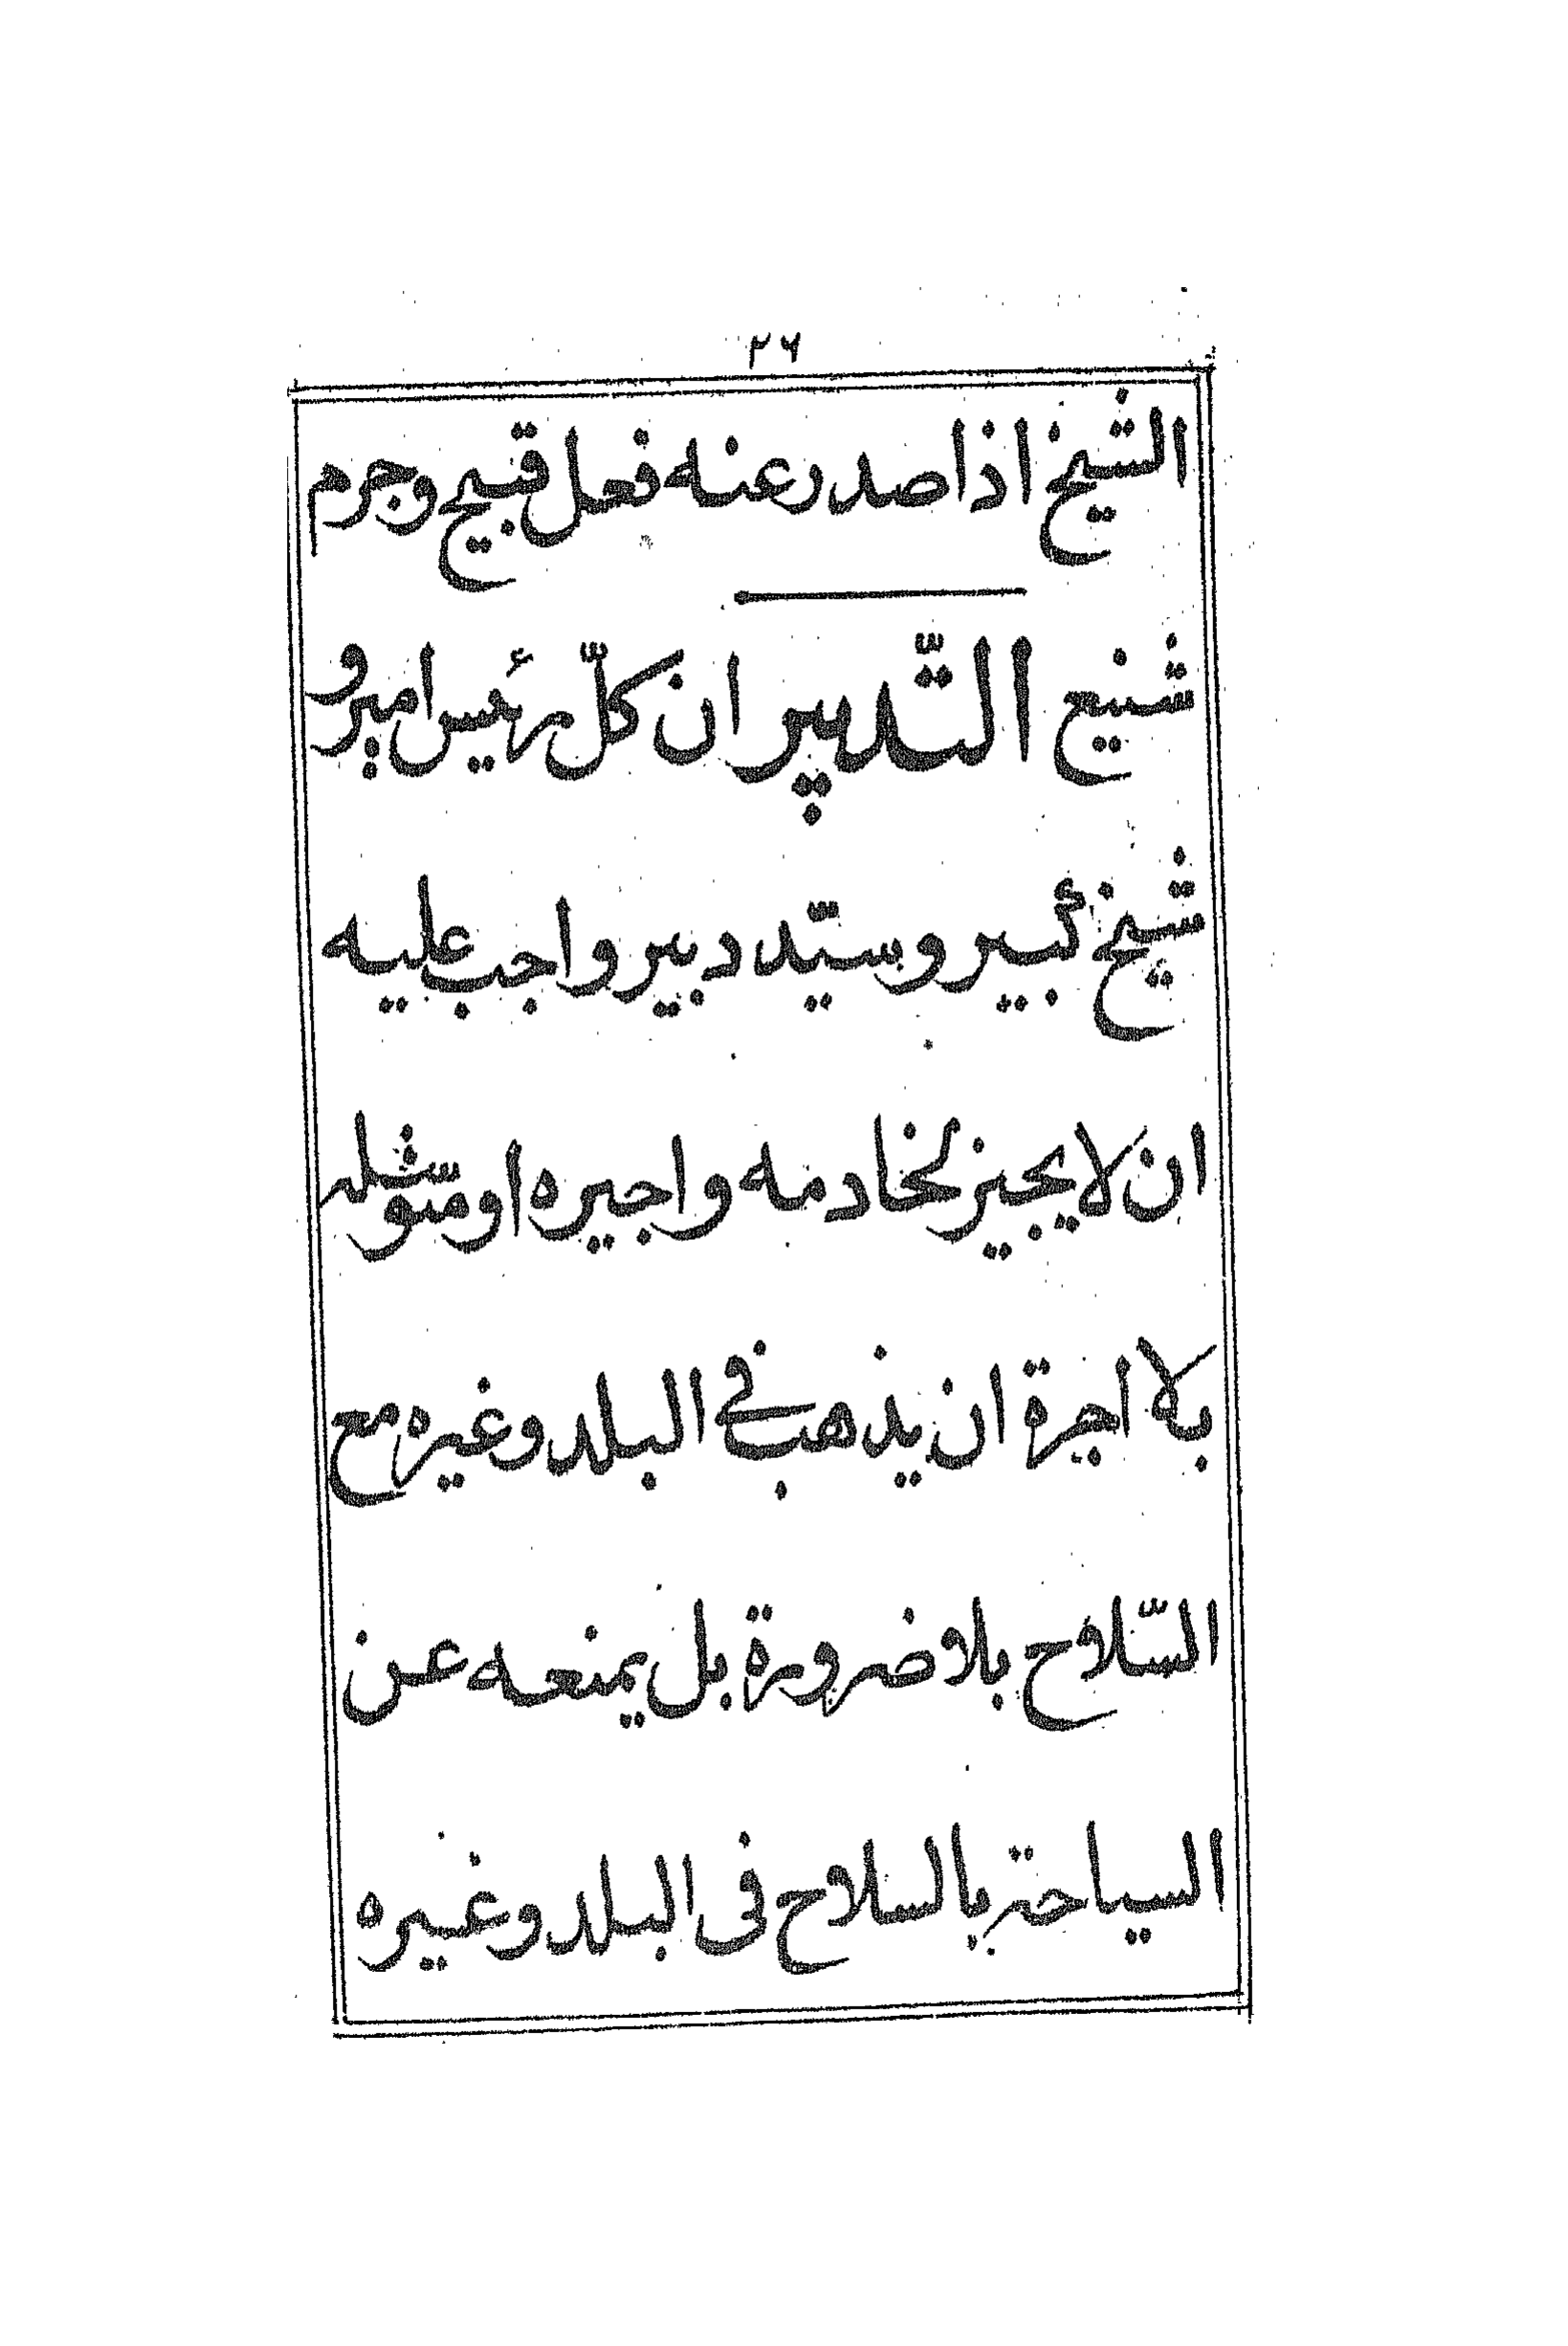 ٢٦
الشيخ اذا صدر عنه فعل قبيح وجرم
شنيع التّدبير ان كلّ رئيس امير و
شيخ كبير وسيّد دبير واجب عليه
ان لا يجيز لخادمه واجيره او
بلا اجرة ان يذهب في البلد وغيره مع
السّلاح بلا ضرورة بل يمنعه عن
السياحة بالسلاح فى البلد وغيره